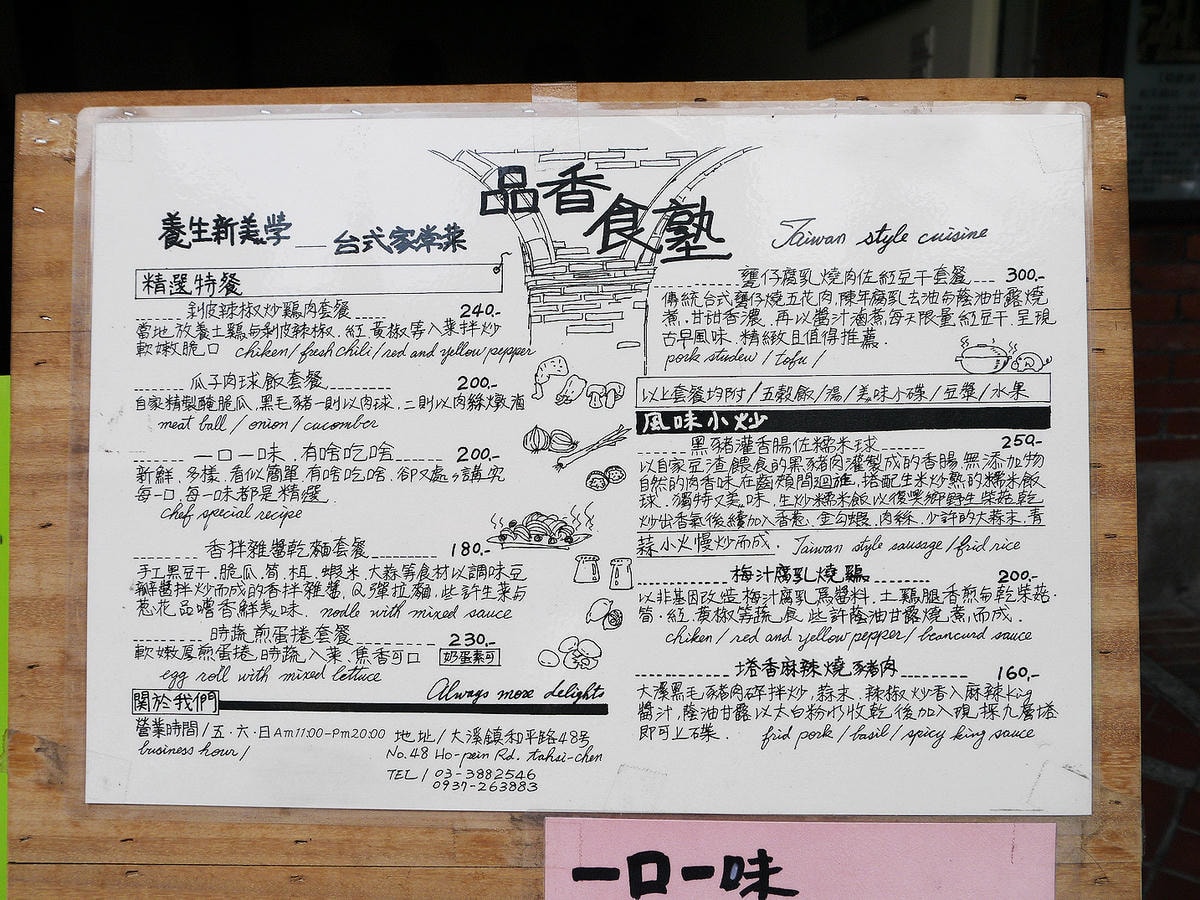 品香食塾
養生新美学 — 台式家常菜
Taiwan style cuisine
精選特餐
剝皮辣椒炒鷄肉套餐 240.-
當地放養土鷄与剝皮辣椒.紅.黃椒等入菜拌炒
軟嫩脆口 chiken/fresh chili/red and yellow pepper
瓜子肉球飯套餐 200.-
自家精製醃脆瓜.黑毛豬一則以肉球.二則以肉絲燉滷
meat ball / onion / cucomber
一口一味.有啥吃啥 200.-
新鮮.多樣.看似簡單.有啥吃啥.卻又處々講究
每一口.每一味都是精選.
chef special recipe
香拌雜醬乾麵套餐 180.-
手工黑豆干.脆瓜.筍.木耳.蝦米.大蒜等食材以調味豆
瓣醬拌炒而成的香拌雜醬.Q彈拉麵.些許生菜与
蔥花品嚐香鮮美味. nodle with mixed sauce
時蔬煎蛋捲套餐 230.-
軟嫩厚煎蛋捲.時蔬入菜.焦香可口 奶蛋素可
egg roll with mixed lettuce
Always more delights
關於我們
營業時間/五.六.日Am11:00-Pm20:00 地址/大溪鎮和平路48号
business hour/ No.48 Ho-pein Rd. tahsi-chen
TEL/03-3882546
0937-263883
甕仔腐乳燒肉佐紅豆干套餐 300.-
傳統台式甕仔燒五花肉.陳年腐乳去油与蔭油甘露燒
煮.甘甜香濃.再以醬汁滷煮每天限量紅豆干.呈現
古早風味.精緻且值得推薦.
pork studew / tofu /
以上套餐均附/五穀飯/湯/美味小碟/豆漿/水果
風味小炒
黑豬灌香腸佐糯米球 250.-
以自家豆渣餵食的黑豬肉灌製成的香腸.無添加物
自然的肉香味在齒頰間迴旋.搭配生米炒熟的糯米飯
球.獨特又美味.生炒糯米飯以復興鄉野生柴菇乾
炒出香氣後續加入香蔥.金勾蝦.肉絲.少許的大蒜末.青
蒜小火慢炒而成. Taiwan style sausage/frid rice
梅汁腐乳燒鷄 200.-
以非基因改造梅汁腐乳為醬料.土鷄腿香煎与乾柴菇.
筍.紅.黃椒等蔬食.些許蔭油甘露燒煮而成.
chiken / red and yellow pepper / beancurd sauce
塔香麻辣燒豬肉 160.-
大溪黑毛豬肉碎拌炒.蒜末.辣椒炒香入麻辣king
醬汁.蔭油甘露以太白粉水收乾後加入現採九層塔
即可上碟. frid pork / basil / spicy king sauce
一口一味